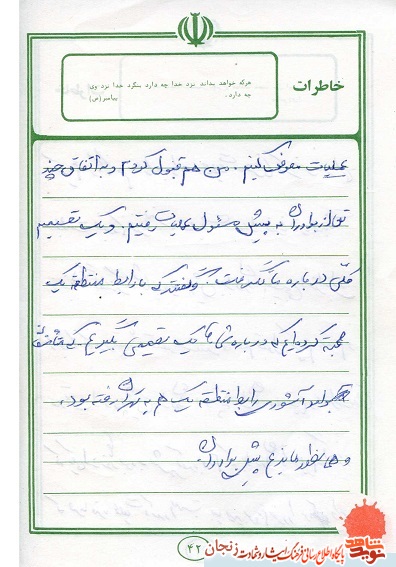 خاطرات
هرکه خواهد بداند نزد خدا چه دارد بنگرد خدا نزد وی
چه دارد.
پیامبر(ص)
عملیات معرفی کنیم. من هم قبول کردم و به اتفاق چند
نفر از برادران به پیش مسئول عملیات رفتیم. و یک تصمیم
کلی درباره ما گرفت. گفتند که با رابط منطقه یک
صحبت کرده‌ایم که درباره شما یک تصمیمی بگیریم که متأسفانه
برادر آشوری رابط منطقه یک هم به تهران رفته بود.
و همینطور ماندیم پیش برادران.
۴۲
پایگاه اطلاع رسانی فرهنگ ایثار و شهادت زنجان
نوید شاهد